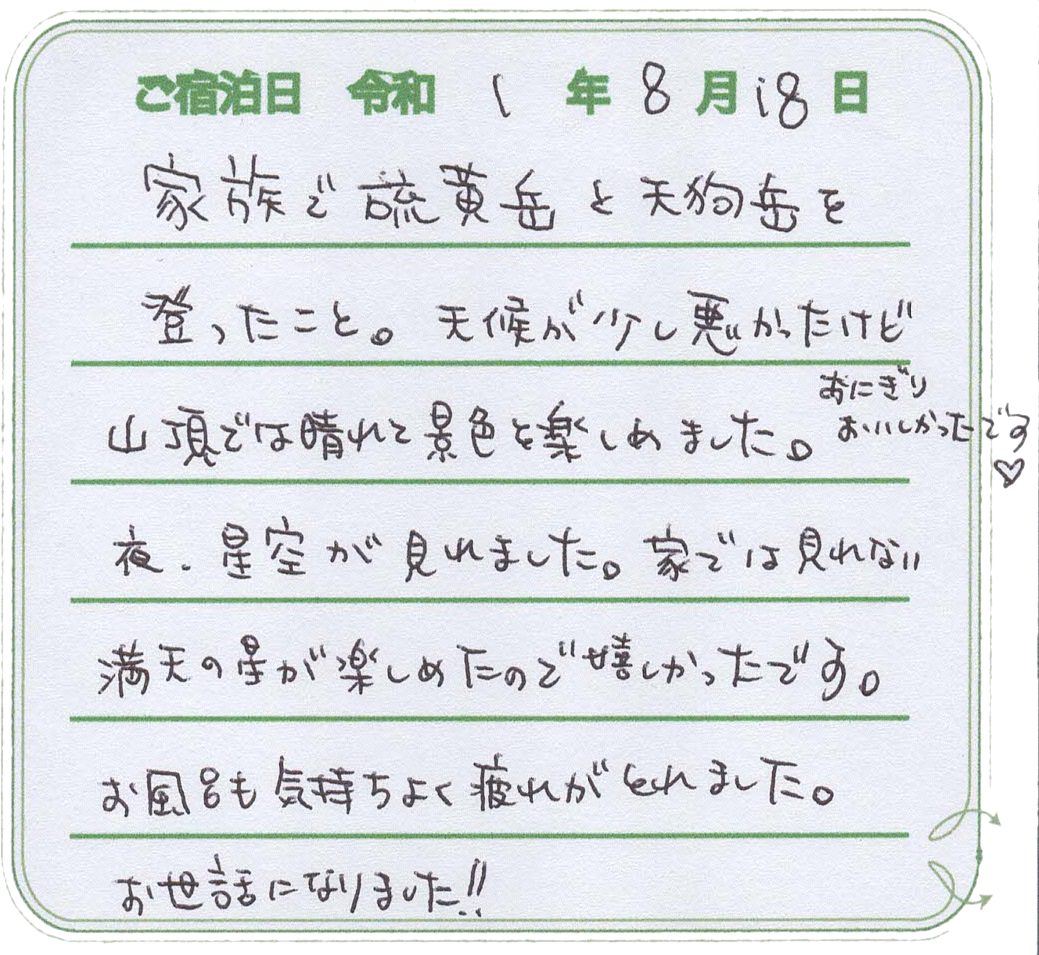 ご宿泊日 令和 1 年 8 月 18 日
家族で硫黄岳と天狗岳を
登ったこと。天候が少し悪かったけど
山頂では晴れて景色を楽しめました。
おにぎり
おいしかったです
♡
夜、星空が見れました。家では見れない
満天の星が楽しめたので嬉しかったです。
お風呂も気持ちよく疲れがとれました。
お世話になりました!!